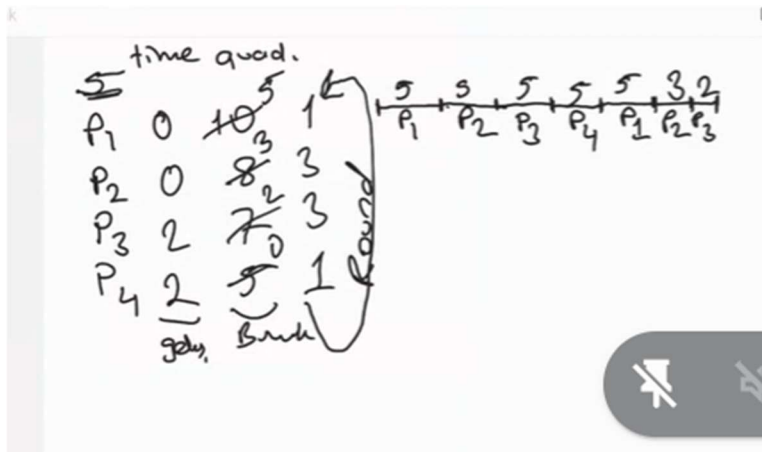 time quad.
5
P1 0 10 5 1
P2 0 8 3 3
P3 2 7 2 3
P4 2 5 0 1
Round
5 5 5 5 5 3 2
P1 P2 P3 P4 P1 P2 P3